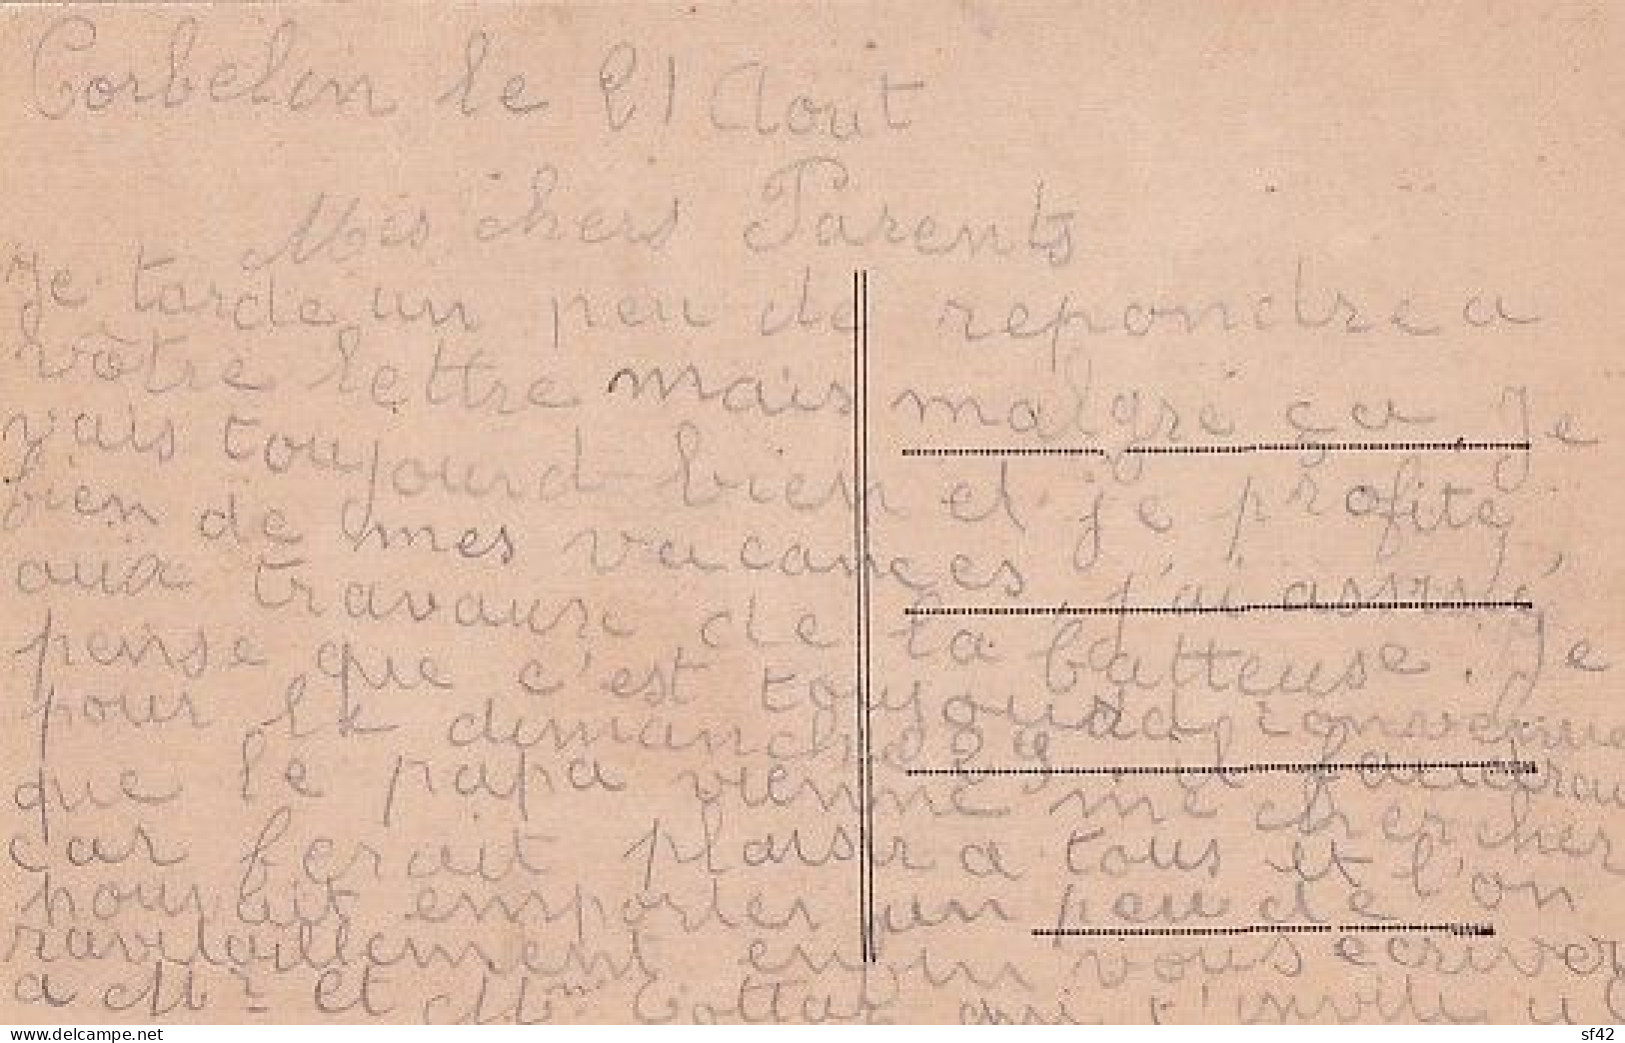 Corbelin le 21 Aout
Mes chers Parents
Je tarde un peu de repondre a
vôtre lettre mais malgre ca, Je
vais toujourd bien et je profite
bien de mes vacances, j'ai assisté
aux travaux de la batteuse. Je
pense que c'est toujourd convenue
pour le dimanche il faudrait
que le papa vienne me chercher
car ferait plaisir a tous et l'on
pourait emporter un peu de
ravitaillement enfin vous ecriver
a Mr et Mme Cottaz qui t'invite
delcampe.net sf42